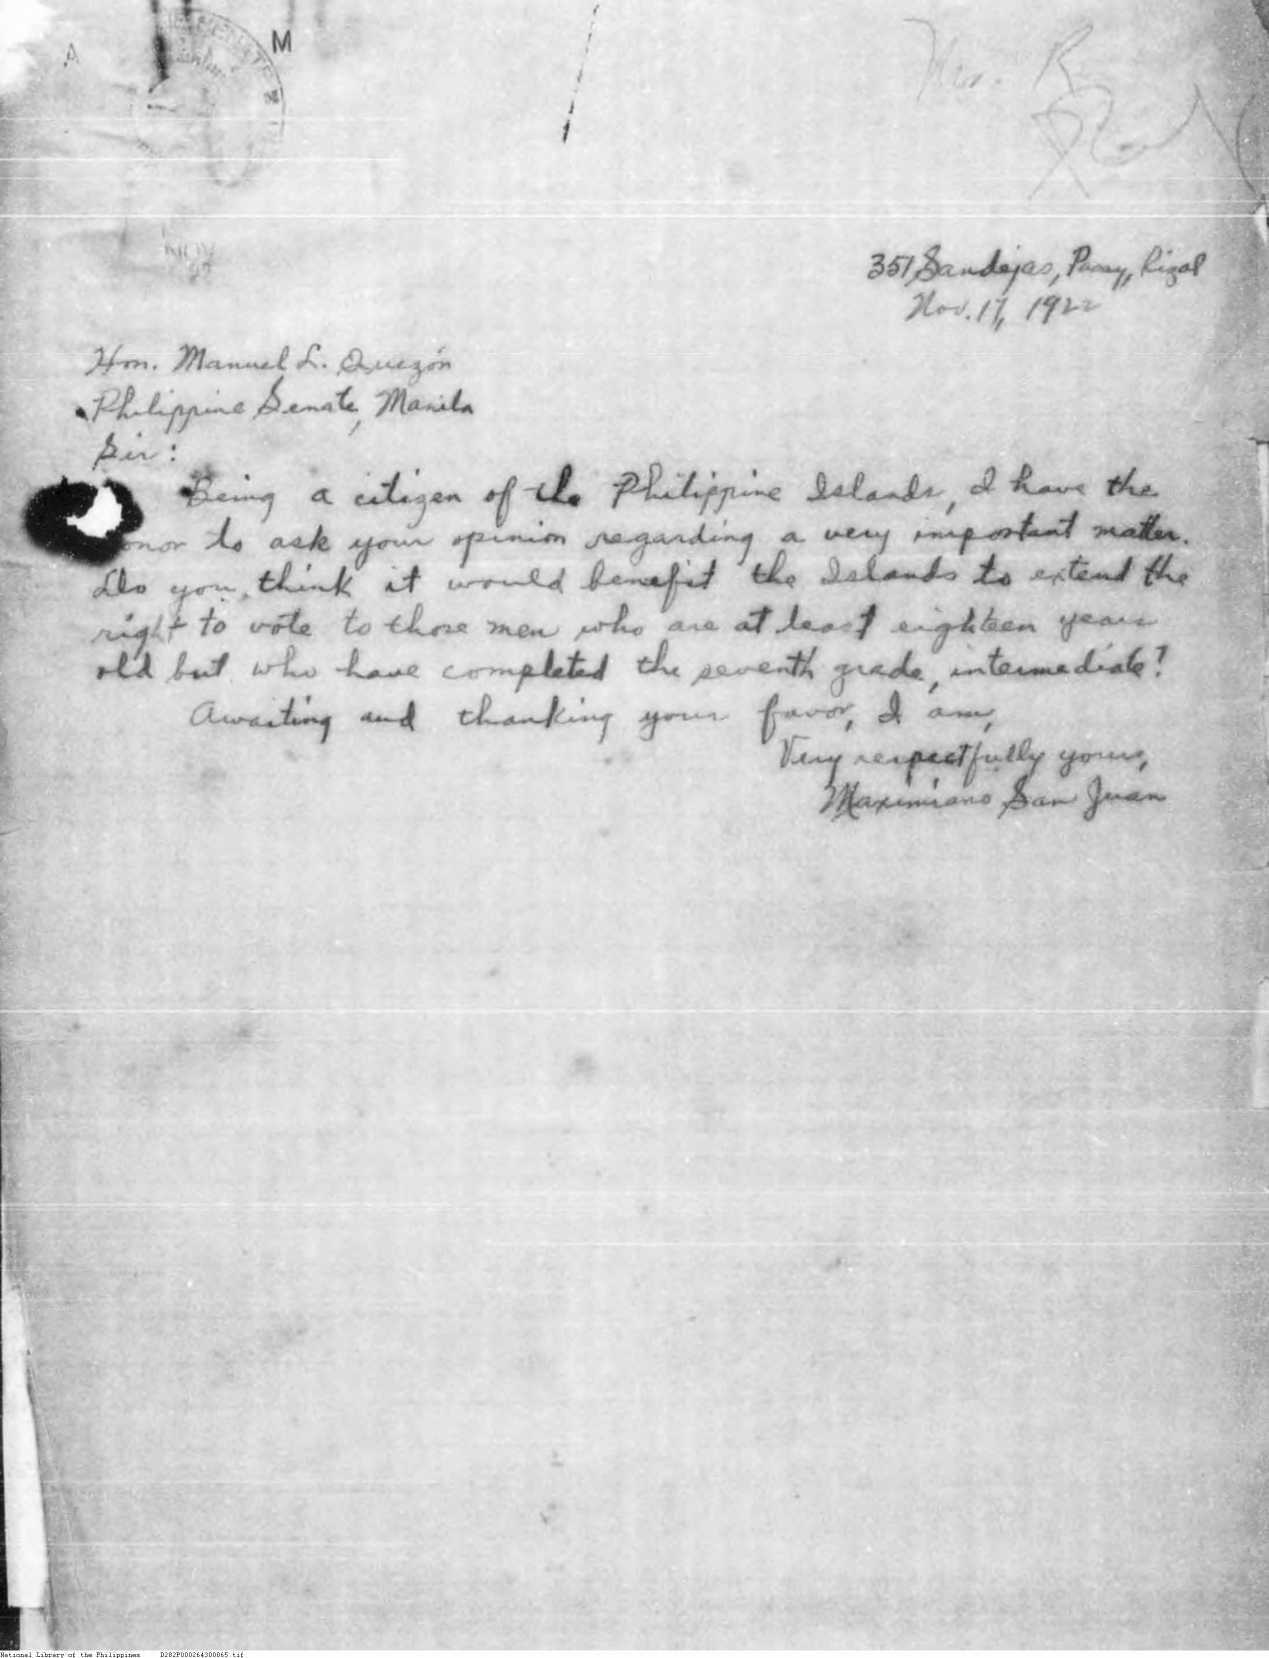 M
351 Sandejas, Pasay, Rizal
Nov. 17, 1922
Hon. Manuel L. Quezón
Philippine Senate, Manila
Sir:
Being a citizen of the Philippine Islands, I have the
onor to ask your opinion regarding a very important matter.
Do you think it would benefit the Islands to extend the
right to vote to those men who are at least eighteen years
old but who have completed the seventh grade, intermediate?
Awaiting and thanking your favor, I am,
Very respectfully yours,
Maximiano San Juan
National Library of the Philippines D282P000264300065.tif